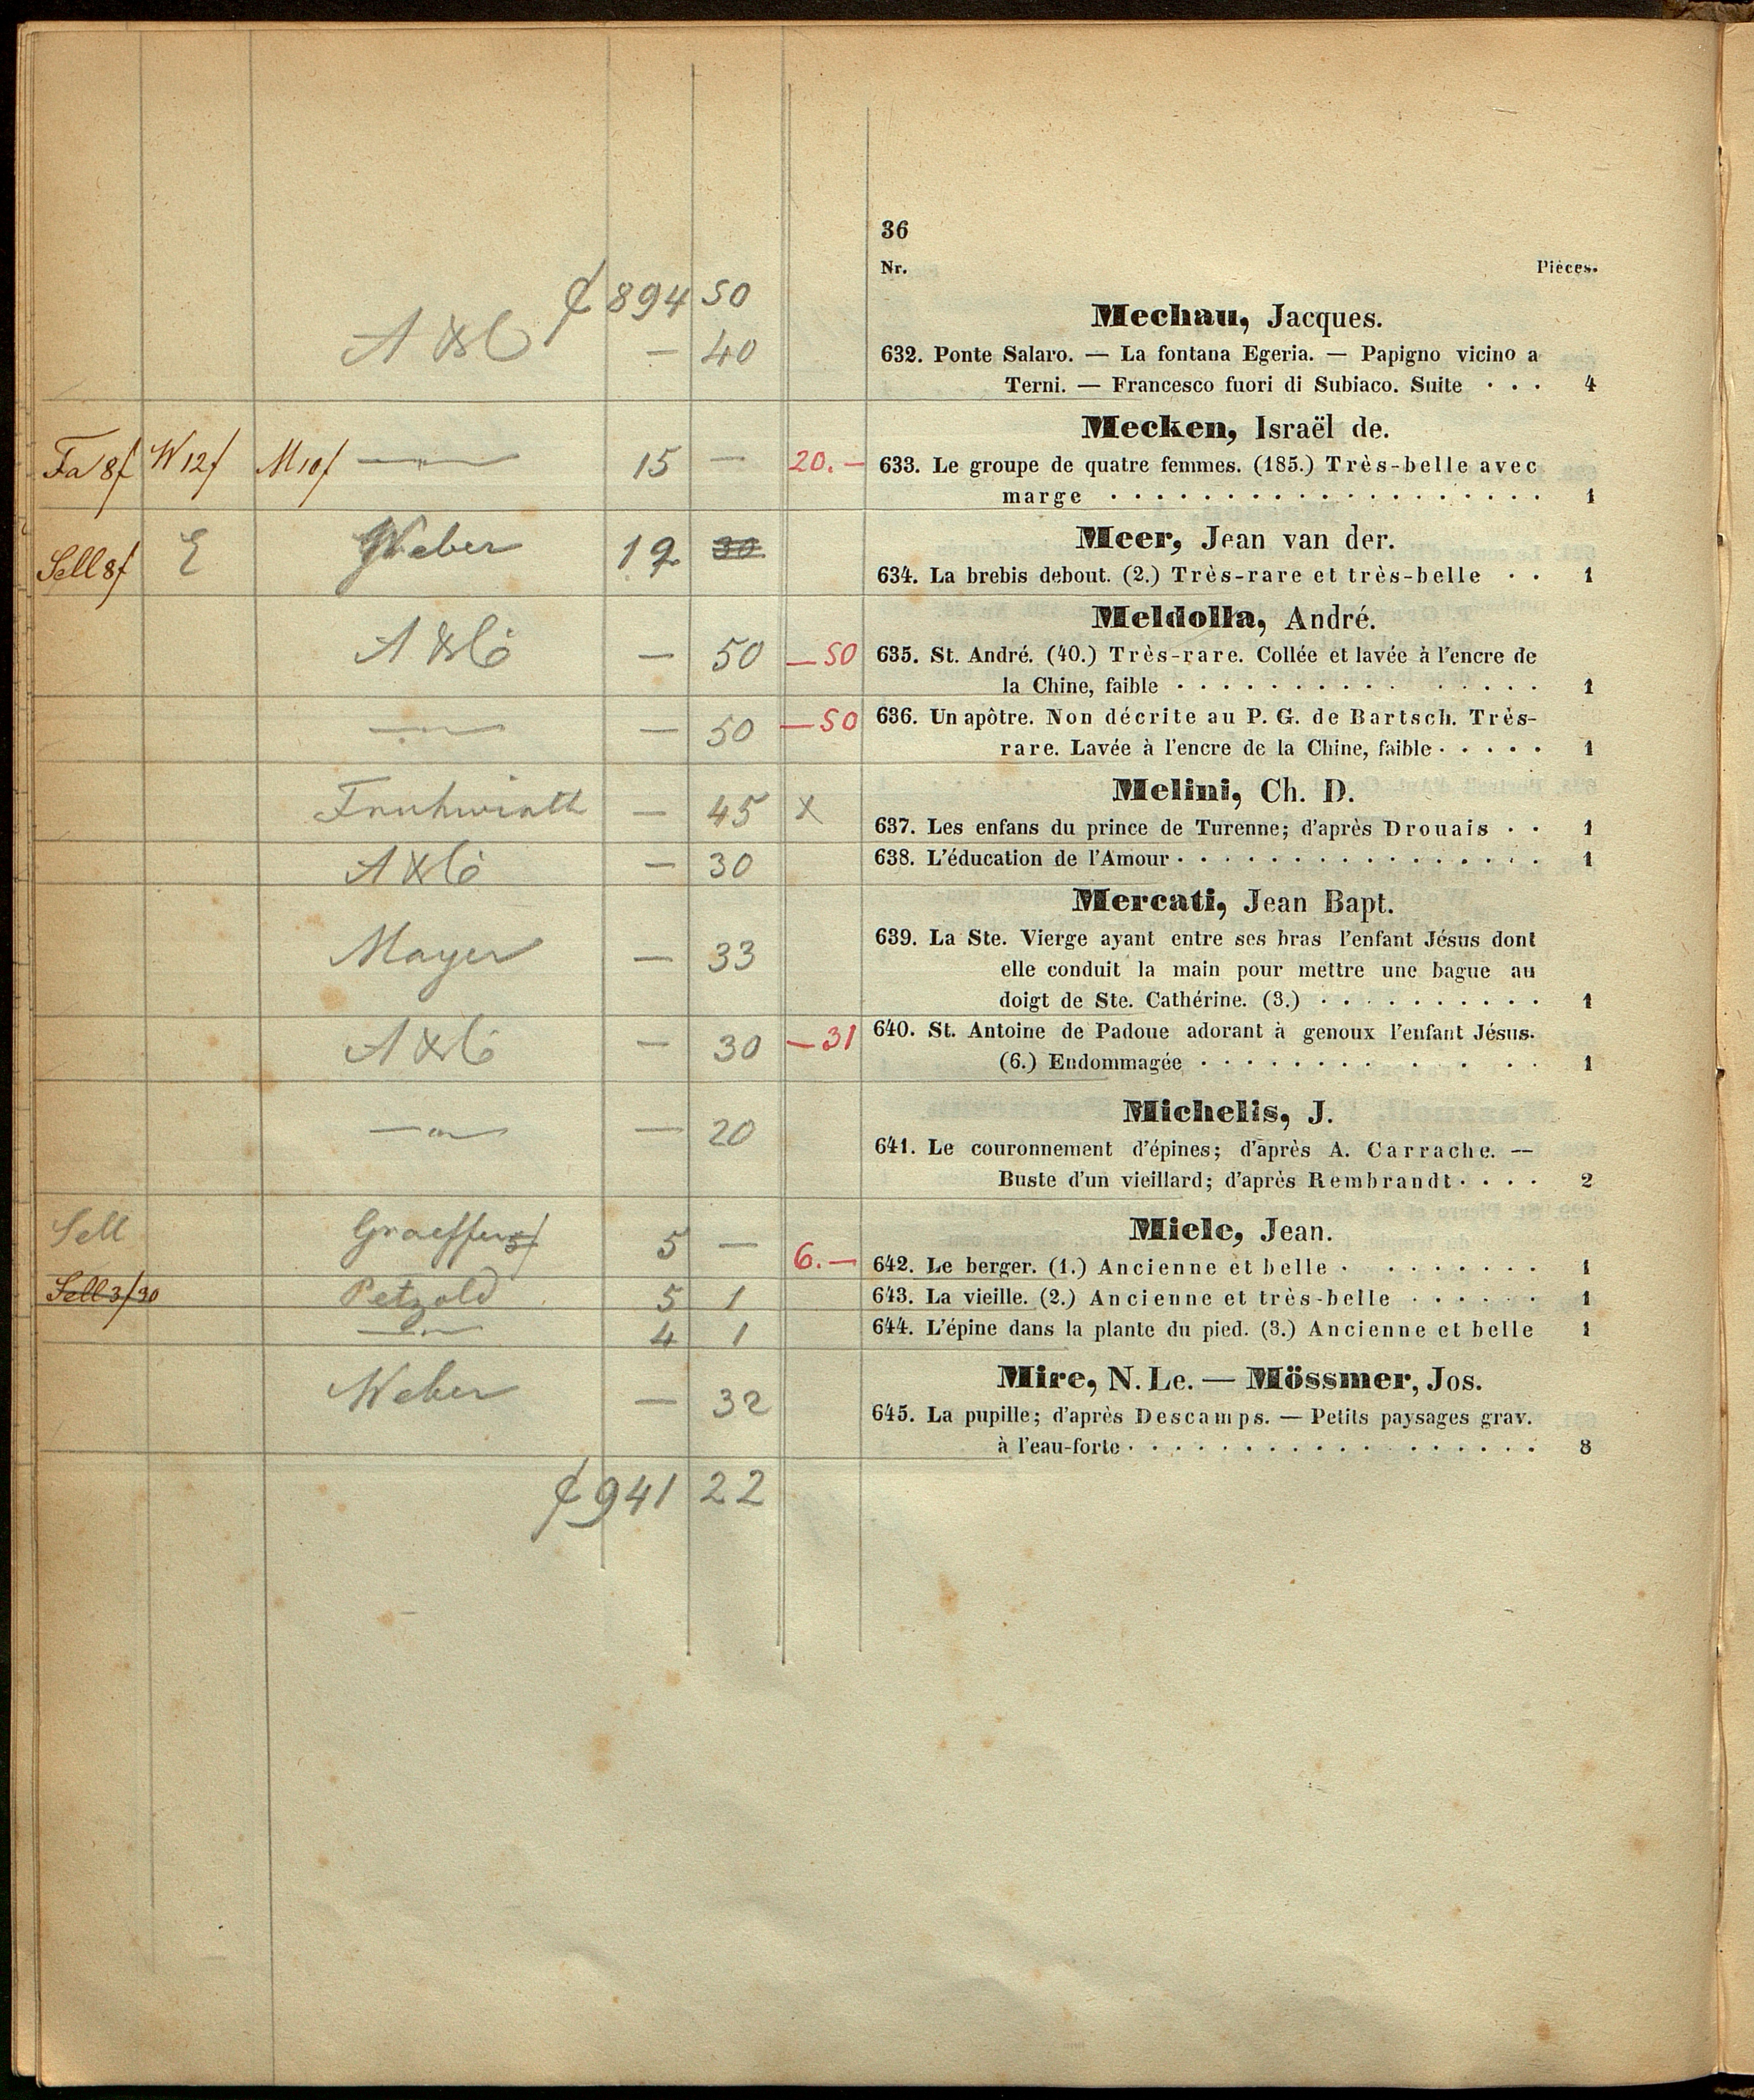 36
Nr. Pièces.
₰ 894 50
Mechau, Jacques.
A & Co — 40 632. Ponte Salaro. — La fontana Egeria. — Papigno vicino a
Terni. — Francesco fuori di Subiaco. Suite . . . 4
Mecken, Israël de.
Fa 8f W 12f M 10f —"— 15 — 20.— 633. Le groupe de quatre femmes. (185.) Très-belle avec
marge . . . . . . . . . . . . . . . . . . 1
Meer, Jean van der.
Sell 8f E Weber 12 30 634. La brebis debout. (2.) Très-rare et très-belle . . 1
Meldolla, André.
A & Co — 50 —50 635. St. André. (40.) Très-rare. Collée et lavée à l'encre de
la Chine, faible . . . . . . . . . . . . . . . 1
—"— — 50 —50 636. Un apôtre. Non décrite au P. G. de Bartsch. Très-
rare. Lavée à l'encre de la Chine, faible . . . . . 1
Melini, Ch. D.
Fruhwirth — 45 x 637. Les enfans du prince de Turenne; d'après Drouais . . 1
A & Co — 30 638. L'éducation de l'Amour . . . . . . . . . . . . . . . 1
Mercati, Jean Bapt.
Mayer — 33 639. La Ste. Vierge ayant entre ses bras l'enfant Jésus dont
elle conduit la main pour mettre une bague au
doigt de Ste. Cathérine. (3.) . . . . . . . . . . 1
A & Co — 30 —31 640. St. Antoine de Padoue adorant à genoux l'enfant Jésus.
(6.) Endommagée . . . . . . . . . . . . . 1
Michelis, J.
—"— — 20 641. Le couronnement d'épines; d'après A. Carrache. —
Buste d'un vieillard; d'après Rembrandt . . . . 2
Miele, Jean.
Sell Graeffer 5f 5 — 6.— 642. Le berger. (1.) Ancienne et belle . . . . . . . . 1
Sell 3f30 Petzold 5 1 643. La vieille. (2.) Ancienne et très-belle . . . . . . 1
—"— 4 1 644. L'épine dans la plante du pied. (3.) Ancienne et belle 1
Mire, N. Le. — Mössmer, Jos.
Weber — 32 645. La pupille; d'après Descamps. — Petits paysages grav.
à l'eau-forte . . . . . . . . . . . . . . . . . . 8
₰ 941 22